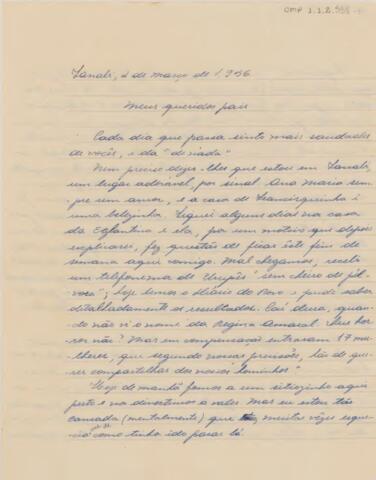 CMP 1.1.2.
Tanabi, 2 de março de 1.956
Meus queridos pais
Cada dia que passa sinto mais saudades
de vocês, e da "
Nem preciso dizer-lhes que estou em Tanabi,
um lugar adorável, por sinal Ana Maria sem-
pre um amor, e a casa de Francisquinha é
uma belezinha. Fiquei alguns dias na casa
da e ela, por um motivo que depois
explicarei, fez questão de ficar êste fim de
semana aqui comigo. Mal chegamos, recebi
um telefonema de Urupês "sem cheiro de pól-
vora"; hoje lemos o Diário do Povo e pude saber
detalhadamente os resultados. Caí dura, quan-
do não vi o nome da Regina Amaral. Que hor-
ror não? Mas em compensação entraram 17 mu-
lheres, que segundo nossas previsões, hão de que-
rer compartilhar dos nossos
Hoje de manhã fomos a um sitiozinho aqui
perto e nos divertimos a valer. Mas eu estou tão
cansada (mentalmente) que muitas vêzes esque-
cia como tinha ido parar lá.